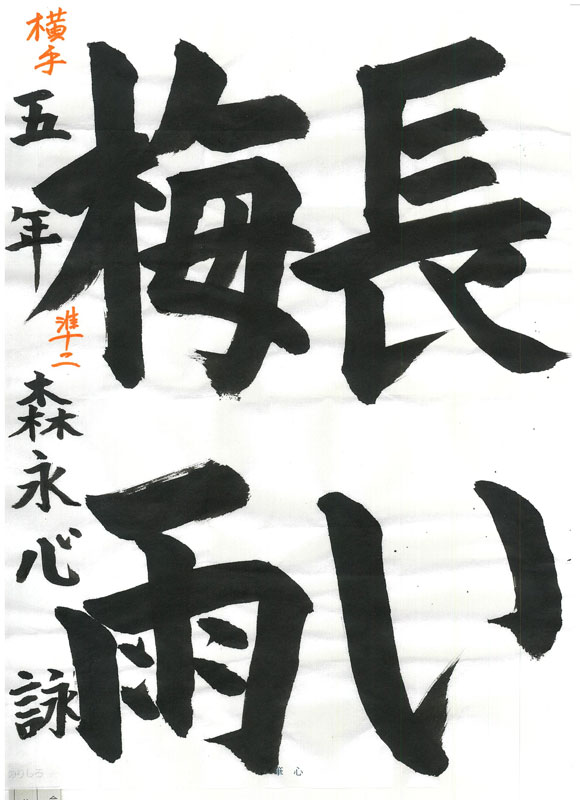 長い
梅雨
横手
五年
準十二
森永心詠
筆心